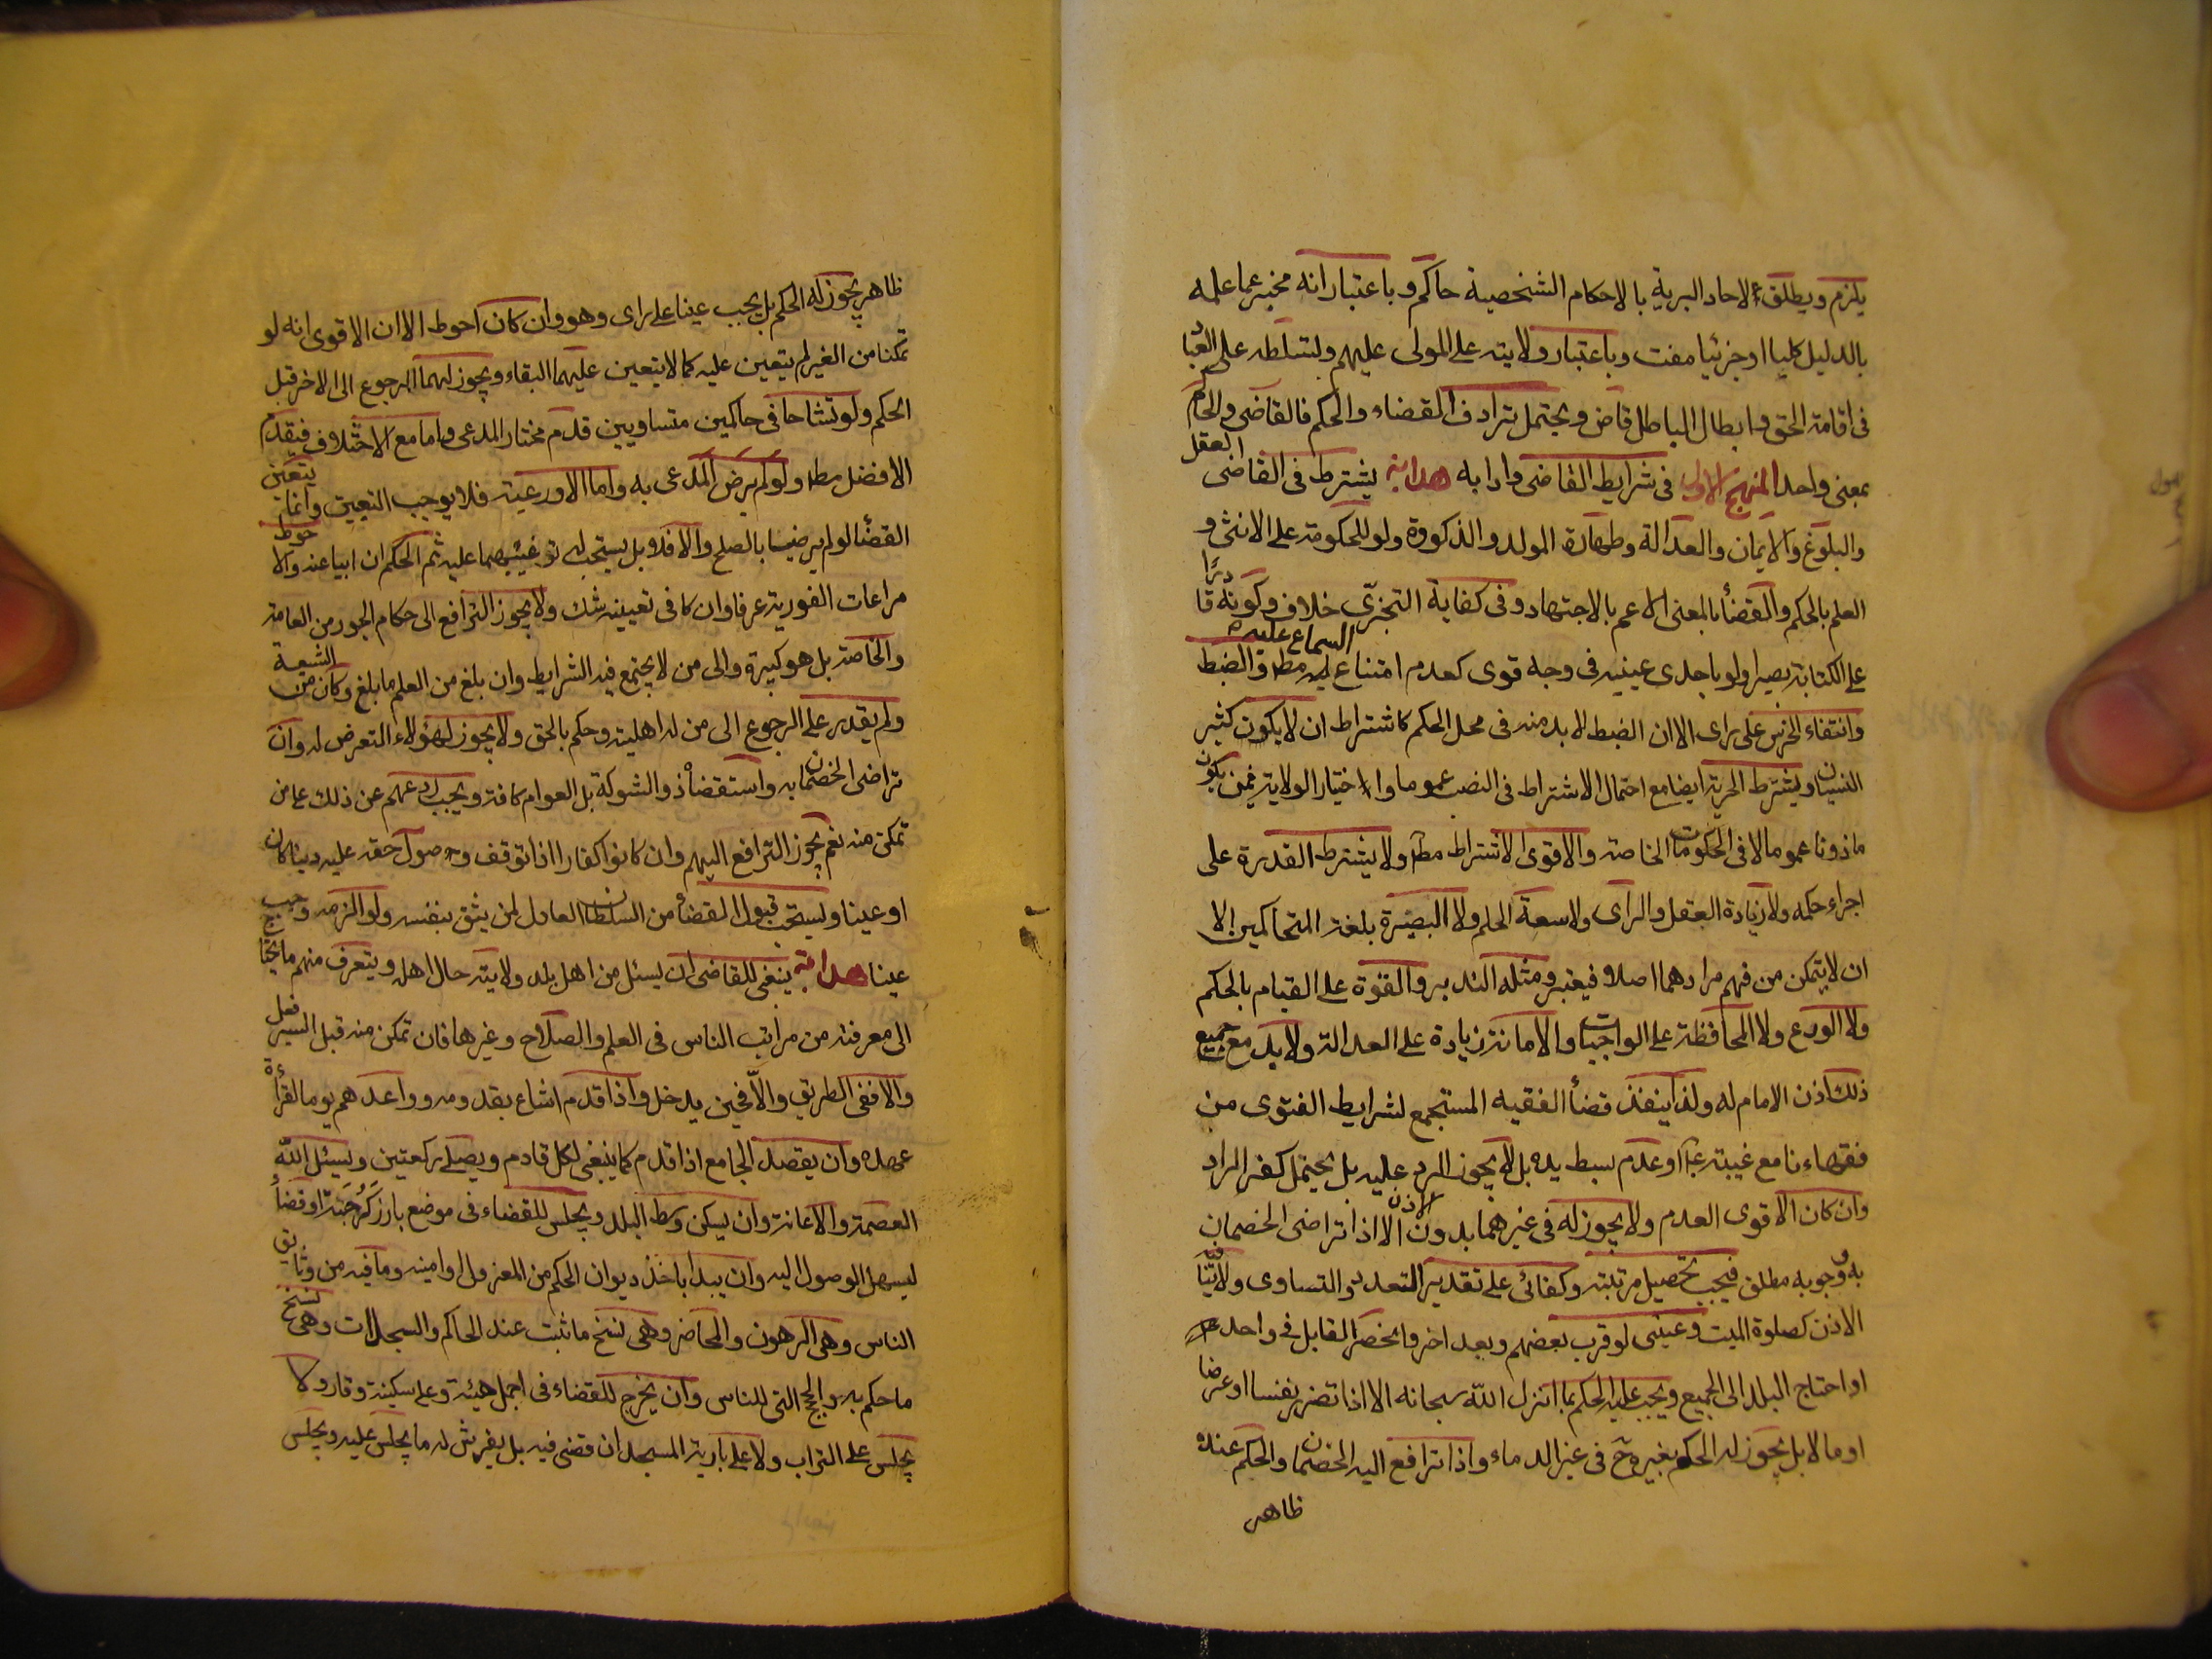 يلزم ويطلق ع الاحاد البرية بالاحكام الشخصية حاكم وباعتبار انه مخبر عما علمه
بالدليل كليا او جزئيا مفت وباعتبار ولايته على المولى عليهم ولتسلطه على العباد
فى اقامة الحق وابطال الباطل قاض ويحتمل ترادف القضاء والحكم فالقاضى والحاكم
بمعنى واحد المنهج الاول فى شرايط القاضى وادابه هداية يشترط فى القاضى العقل
والبلوغ والايمان والعدالة وطهارة المولد والذكورة ولو للحكومة على الانثى و
العلم بالحكم والقضأ بالمعنى الاعم بالاجتهاد وفى كفاية التجزى خلاف وكونه قادرًا
على الكتابة بصيرا ولو باحدى عينيه فى وجه قوى كعدم امتناع السماع عليه مط والضبط
وانتفاء الخرس على راى الا ان الضبط لا بد منه فى محل الحكم كاشتراط ان لا يكون كثير
النسيان ويشترط الحرية ايضا مع احتمال الاشتراط فى النصب عموما واختيار الولاية فيمن يكون
ماذونا عموما لا فى الحكومات الخاصة والاقوى الاشتراط مط ولا يشترط القدرة على
اجراء حكمه ولا زيادة العقل والراى ولا سعة الحلم ولا البصيرة بلغة المتحاكمين الا
ان لا يتمكن من فهم مرادهما اصلا فيعتبر ومثله التدبير والقوة على القيام بالحكم
ولا الورع ولا المحافظة على الواجبات والامانة زيادة على العدالة ولا بد مع جميع
ذلك اذن الامام له ولذا ينفذ قضأ الفقيه المستجمع لشرايط الفتوى من
فقهاءنا مع غيبته او عدم بسط يده بل لا يجوز الرد عليه بل يحتمل كفر الراد
وان كان الاقوى العدم ولا يجوز له فى غيرهما بدون الاذن الا اذا تراضى الخصمان
به ووجوبه مطلق فيجب تحصيل مرتبته وكفائى على تقدير التعدد والتساوى ولا ينافيه
الاذن كصلوة الميت وعينى لو قرب بعضهم وبعد اخر وانحصر القابل فى واحد
او احتاج البلد الى الجميع ويجب عليه الحكم بما انزل الله سبحانه الا اذا تضرر نفسا او عرضا
او مالا بل يجوز له الحكم بغيره ح فى غير الدماء واذا ترافع اليه الخصمان والحكم عنده
ظاهر
ظاهر يجوز له الحكم بل يجب عينا على راى وهو وان كان احوط الا ان الاقوى انه لو
تمكنا من الغير لم يتعين عليه كما لا يتعين عليهما البقاء ويجوز لهما الرجوع الى الاخر قبل
الحكم ولو تشاحا فى حاكمين متساويين قدم مختار المدعى واما مع الاختلاف فيقدم
الافضل مط ولو لم يرض المدعى به واما الاورعية فلا يوجب التعيين وانما يتعين
القضأ لو لم يرضيا بالصلح والا فلا بل يستحب له ترغيبهما عليه ثم الحكم ان ابيا عنه والاحوط
مراعات الفورية عرفا وان كا فى تعيينه شك ولا يجوز الترافع الى حكام الجور من العامة
والخاصة بل هو كبيرة والى من لا يجتمع فيه الشرايط وان بلغ من العلم ما بلغ وكان من الشيعة
ولم يقدر على الرجوع الى من له اهلية وحكم بالحق ولا يجوز لهؤلاء التعرض له وان
تراضى الخصمان به واستقضاه ذو الشوكة بل العوام كافة ويجب ردعهم عن ذلك على من
تمكن منه نعم يجوز الترافع اليهم وان كانوا كفارا اذا توقف وصول حقه عليه دينا كان
او عينا ويستحب قبول القضأ من السلطان العادل لمن يثق بنفسه ولو الزمه وجب
عينا هداية ينبغى للقاضى ان يسئل من اهل بلد ولايته حال اهله ويتعرف منهم ما يحتاج
الى معرفته من مراتب الناس فى العلم والصلاح وغيرها فان تمكن منه قبل السير فعل
والا ففى الطريق والّا فحين يدخل واذا قدم اشاع بقدومه وواعدهم يوما لقرأءة
عهده وان يقصد الجامع اذا قدم كما ينبغى لكل قادم ويصلى ركعتين ويسئل الله
العصمة والاعانة وان يسكن وسط البلد ويجلس للقضاء فى موضع بارز كرحبة او قضأ
ليسهل الوصول اليه وان يبدا باخذ ديوان الحكم من المعزول او امينه وما فيه من وثايق
الناس وهى الرهون والمحاضر وهى نسخ ما ثبت عند الحاكم والسجلات وهى نسخ
ما حكم به والحجج التى للناس وان يخرج للقضاء فى اجمل هيئة وعلى سكينة وقار ولا
يجلس على التراب ولا على بارية المسجد ان قضى فيه بل يفرش له ما يجلس عليه ويجلس